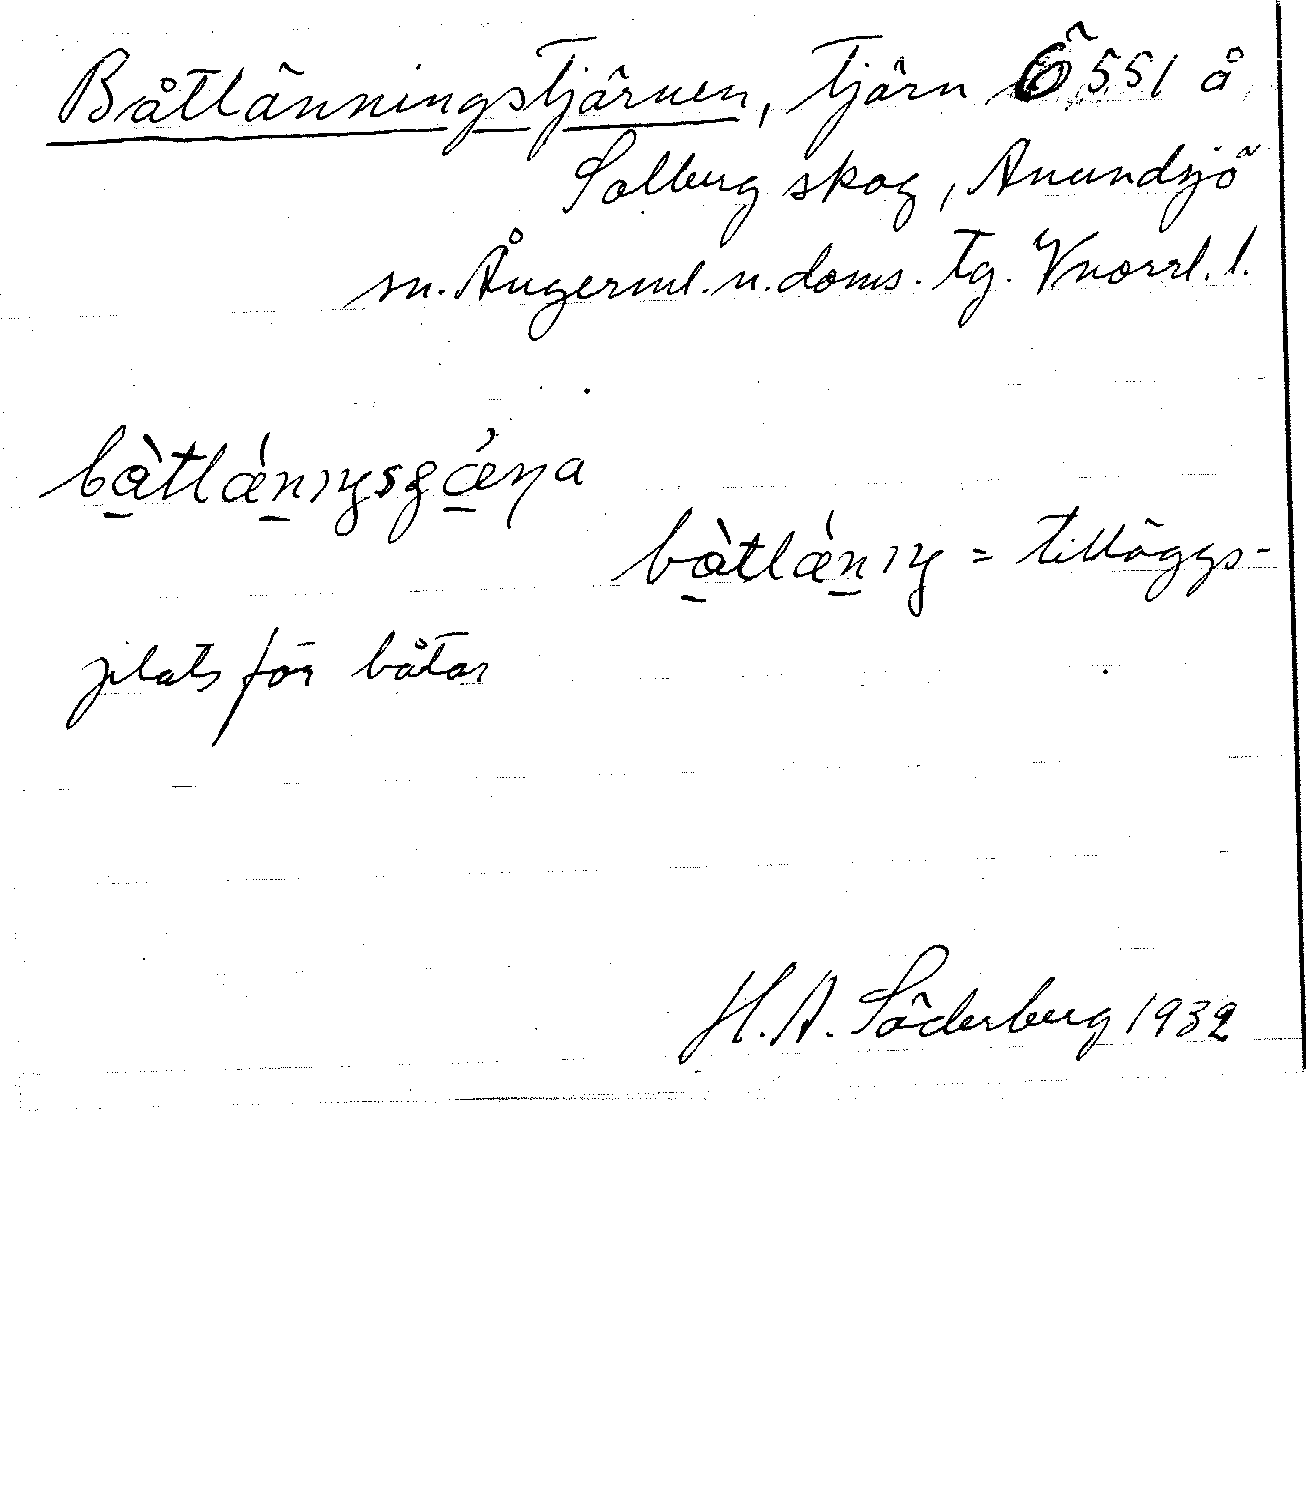 Båtlänningstjärnen, tjärn Ö 551 å
Solberg skog, Anundsjö
sn. Ångerml. n. doms. tg. Vnorrl. l.
bàtlǽnıŋsgǽṇa
bàtlǽnıŋ = tilläggs-
plats för båtar
H. A. Söderberg 1932